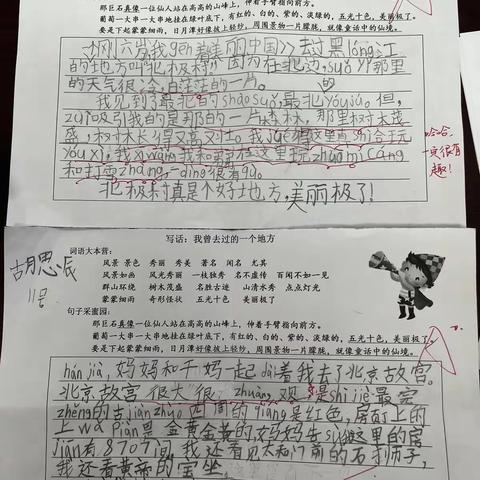 那巨石真像一位仙人站在高高的山峰上，伸着手臂指向前方。
葡萄一大串一大串地挂在绿叶底下，有红的、白的、紫的、淡绿的，五光十色，美丽极了。
要是下起蒙蒙细雨，日月潭好像披上轻纱，周围景物一片朦胧，就像童话中的仙境。
六岁，我gēn着美丽中国》去过黑lóng江
的地方叫北极村。因为在北边，suǒ yǐ那里
的天气很冷，白茫茫的一片。
我见到了最北的shào suǒ，最北yóu jú。但，
zuì吸引我的是那的一片森林，那里树木茂
盛，树木长得又高又壮。我jué得这里shì合玩
yóu xì，我xiǎng我和在这里玩zhuō mí cáng
和打雪zhàng，一dìng很有qù。
北极村真是个好地方，美丽极了！
哈哈，
一定很有
趣！
写话：我曾去过的一个地方
胡思辰
11号
词语大本营：
风景 景色 秀丽 秀美 著名 闻名 尤其
风景如画 风光秀丽 一枝独秀 名不虚传 百闻不如一见
群山环绕 树木茂盛 名胜古迹 山清水秀 点点灯光
蒙蒙细雨 奇形怪状 五光十色 美丽极了
句子采蜜园：
那巨石真像一位仙人站在高高的山峰上，伸着手臂指向前方。
葡萄一大串一大串地挂在绿叶底下，有红的、白的、紫的、淡绿的，五光十色，美丽极了。
要是下起蒙蒙细雨，日月潭好像披上轻纱，周围景物一片朦胧，就像童话中的仙境。
hán jià，妈妈和干妈一起dài着我去了北京故宫。
北京故宫很大很zhuàng观，是shì jiè最完
zhěng的古jiàn zhù，四周的qiáng是红色，房顶上的
上wǎ piàn是金黄金黄的，妈妈告sù我这里的房
jiān有8707间，我还看见太和门前的石狮子，
我还看黄帝的宝坐。